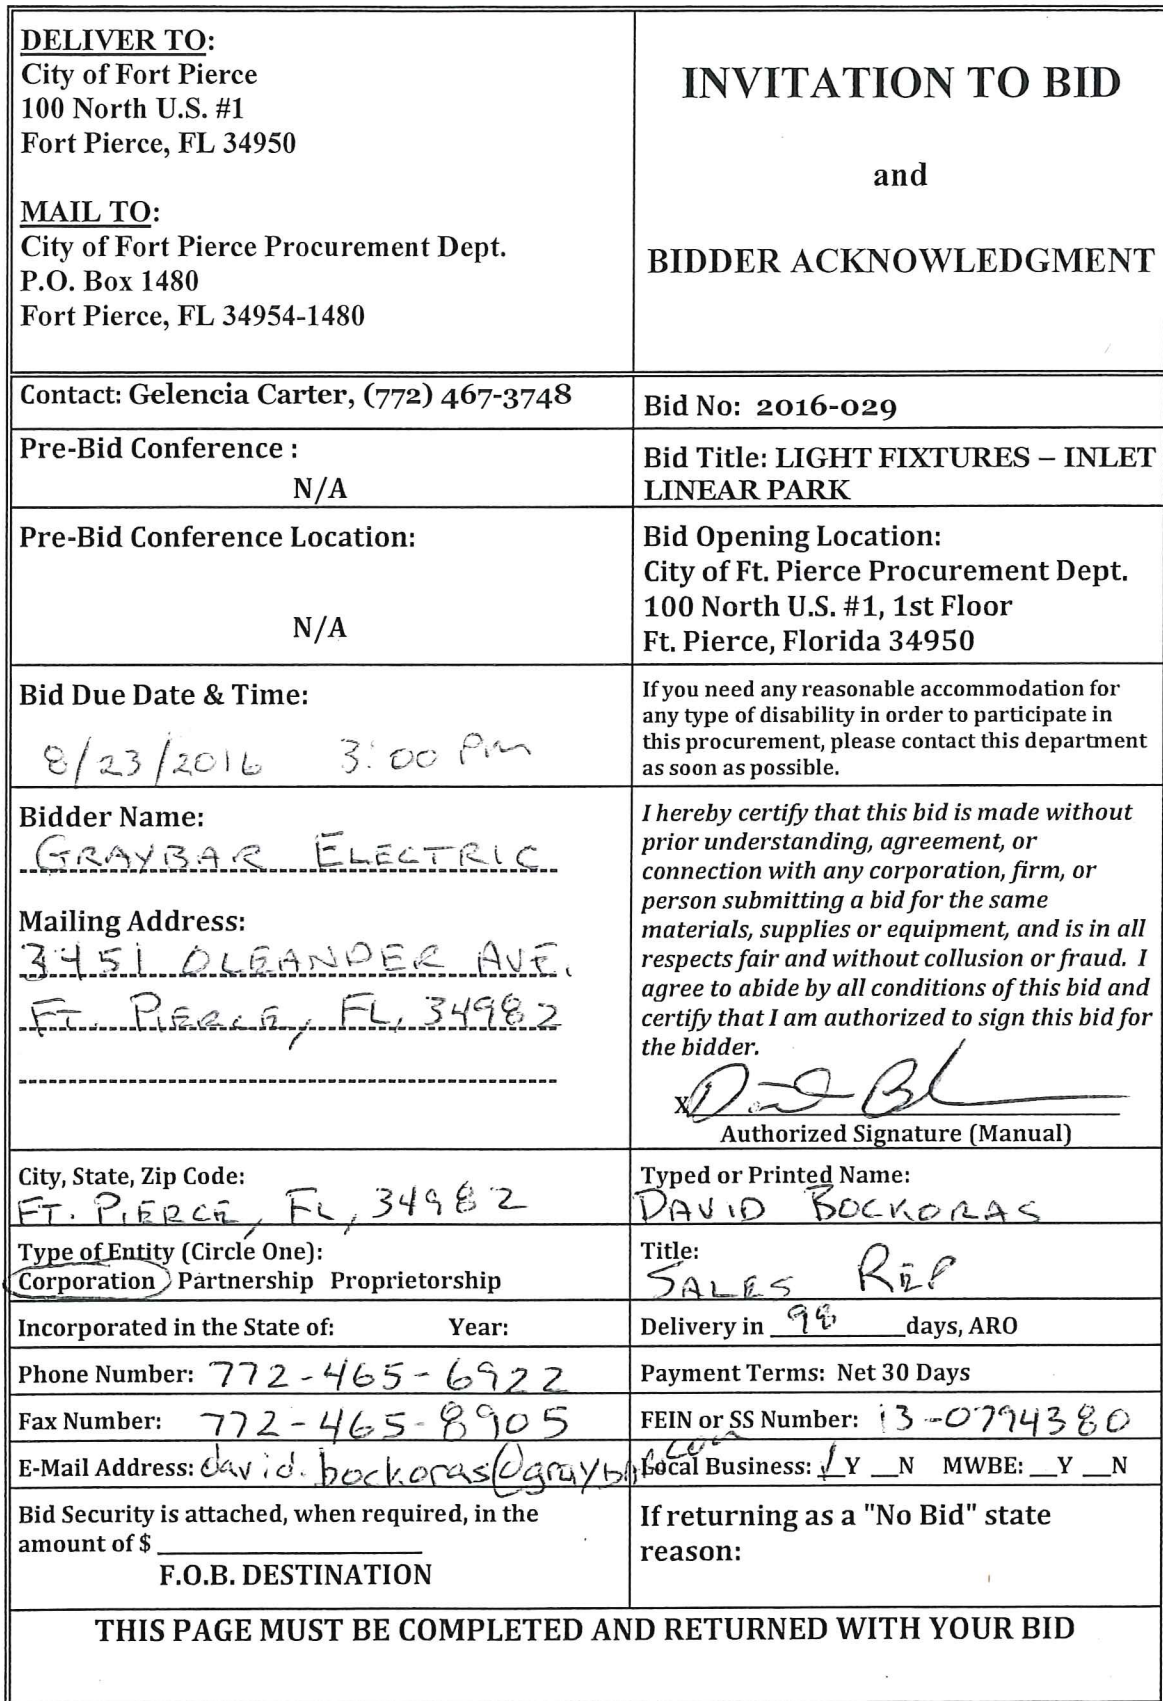 DELIVER TO:
City of Fort Pierce
100 North U.S. #1
Fort Pierce, FL 34950
MAIL TO:
City of Fort Pierce Procurement Dept.
P.O. Box 1480
Fort Pierce, FL 34954-1480
INVITATION TO BID
and
BIDDER ACKNOWLEDGMENT
Contact: Gelencia Carter, (772) 467-3748
Bid No: 2016-029
Pre-Bid Conference :
N/A
Bid Title: LIGHT FIXTURES – INLET
LINEAR PARK
Pre-Bid Conference Location:
N/A
Bid Opening Location:
City of Ft. Pierce Procurement Dept.
100 North U.S. #1, 1st Floor
Ft. Pierce, Florida 34950
Bid Due Date & Time:
8/23/2016 3:00 PM
If you need any reasonable accommodation for
any type of disability in order to participate in
this procurement, please contact this department
as soon as possible.
Bidder Name:
GRAYBAR ELECTRIC
Mailing Address:
3451 OLEANDER AVE.
FT. PIERCE, FL, 34982
I hereby certify that this bid is made without
prior understanding, agreement, or
connection with any corporation, firm, or
person submitting a bid for the same
materials, supplies or equipment, and is in all
respects fair and without collusion or fraud. I
agree to abide by all conditions of this bid and
certify that I am authorized to sign this bid for
the bidder.
X
Authorized Signature (Manual)
City, State, Zip Code:
FT. PIERCE, FL, 34982
Typed or Printed Name:
DAVID BOCKORAS
Type of Entity (Circle One):
Corporation Partnership Proprietorship
Title:
SALES REP
Incorporated in the State of: Year:
Delivery in 98 days, ARO
Phone Number: 772-465-6922
Payment Terms: Net 30 Days
Fax Number: 772-465-8905
FEIN or SS Number: 13-0794380
E-Mail Address: david.bockoras@graybar.com
Local Business: √Y __N MWBE: __Y __N
Bid Security is attached, when required, in the
amount of $
F.O.B. DESTINATION
If returning as a "No Bid" state
reason:
THIS PAGE MUST BE COMPLETED AND RETURNED WITH YOUR BID